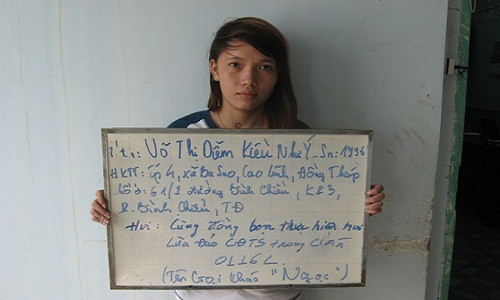 T.t: Võ Thị Diễm Kiều Như Ý - Sn: 1996
HKTT: ấp 4, xã Ba Sao, Cao Lãnh, Đồng Tháp
61/2 đường Bình Chiểu, KP3,
P. Bình Chiểu, TĐ
Hvi: Cùng đồng bọn thực hiện
Lừa Đảo CĐTS trong
(Tên Gọi khác "Ngọc")